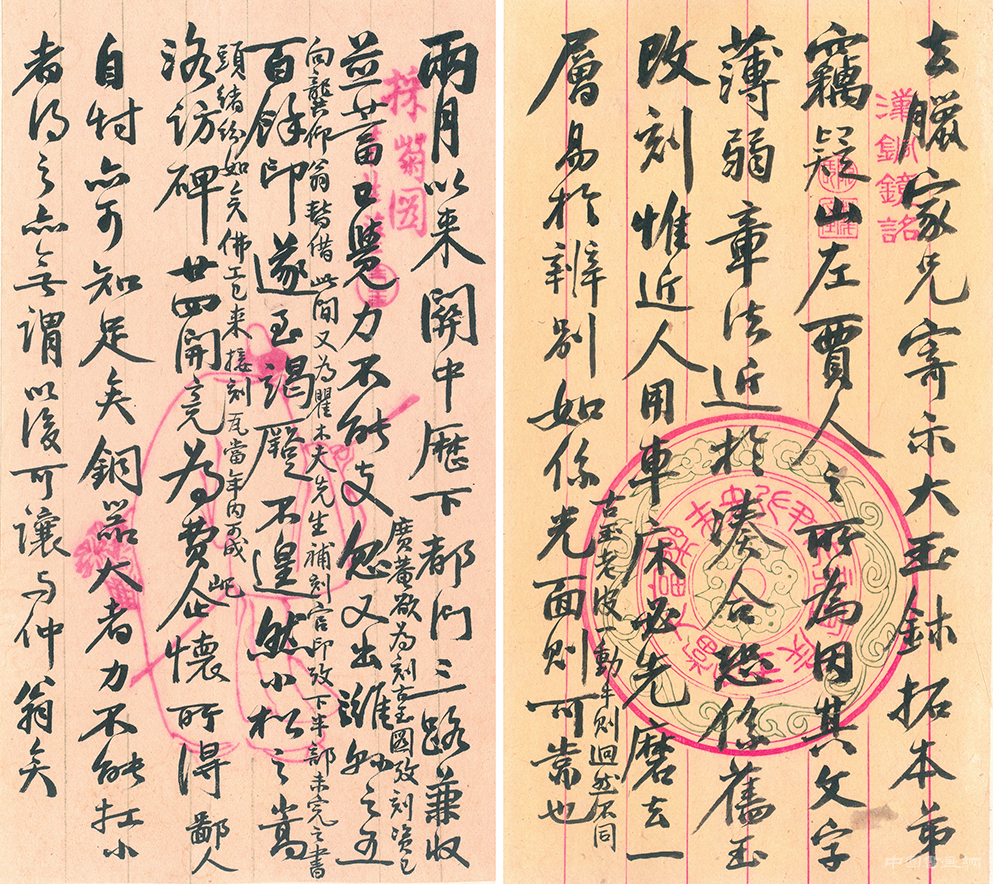 漢銅鏡銘
去臘家兄寄示大玉鉢拓本弟
竊疑山左賈人之所為因其文字
薄弱章法近於湊合恐係舊玉
改刻惟近人用車床必先磨去一
層易於辨別如係光面則可也
古玉老皮一動車則迥然不同
採菊圖
兩月以来關中歷下都門三路兼收
並蓄已覺力不能支忽又出濰縣之五
廣菴欲為刻古玉圖攷刻資已
向龔仰翁暫借此間又為瞿木夫先生補刻官印攷下半部未完之書
頭緒紛如矣佛工已来接刻瓦當年内可成
百餘印遂至竭蹶不遑然小松之嵩
洛訪碑廿四開竟為費屺懷所得鄙人
自忖亦可知足矣銅器大者力不能扛小
者得之亦無謂以後可讓与仲翁矣